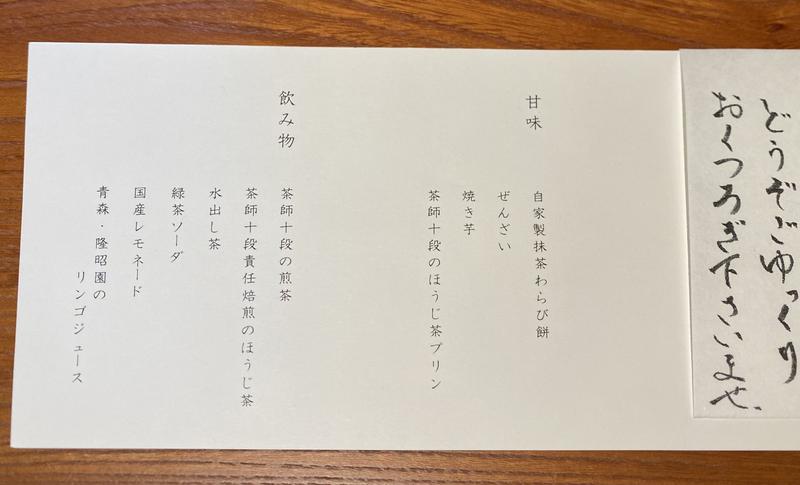 どうぞごゆっくり
おくつろぎ下さいませ。
甘味
自家製抹茶わらび餅
ぜんざい
焼き芋
茶師十段のほうじ茶プリン
飲み物
茶師十段の煎茶
茶師十段責任焙煎のほうじ茶
水出し茶
緑茶ソーダ
国産レモネード
青森・隆昭園の
リンゴジュース